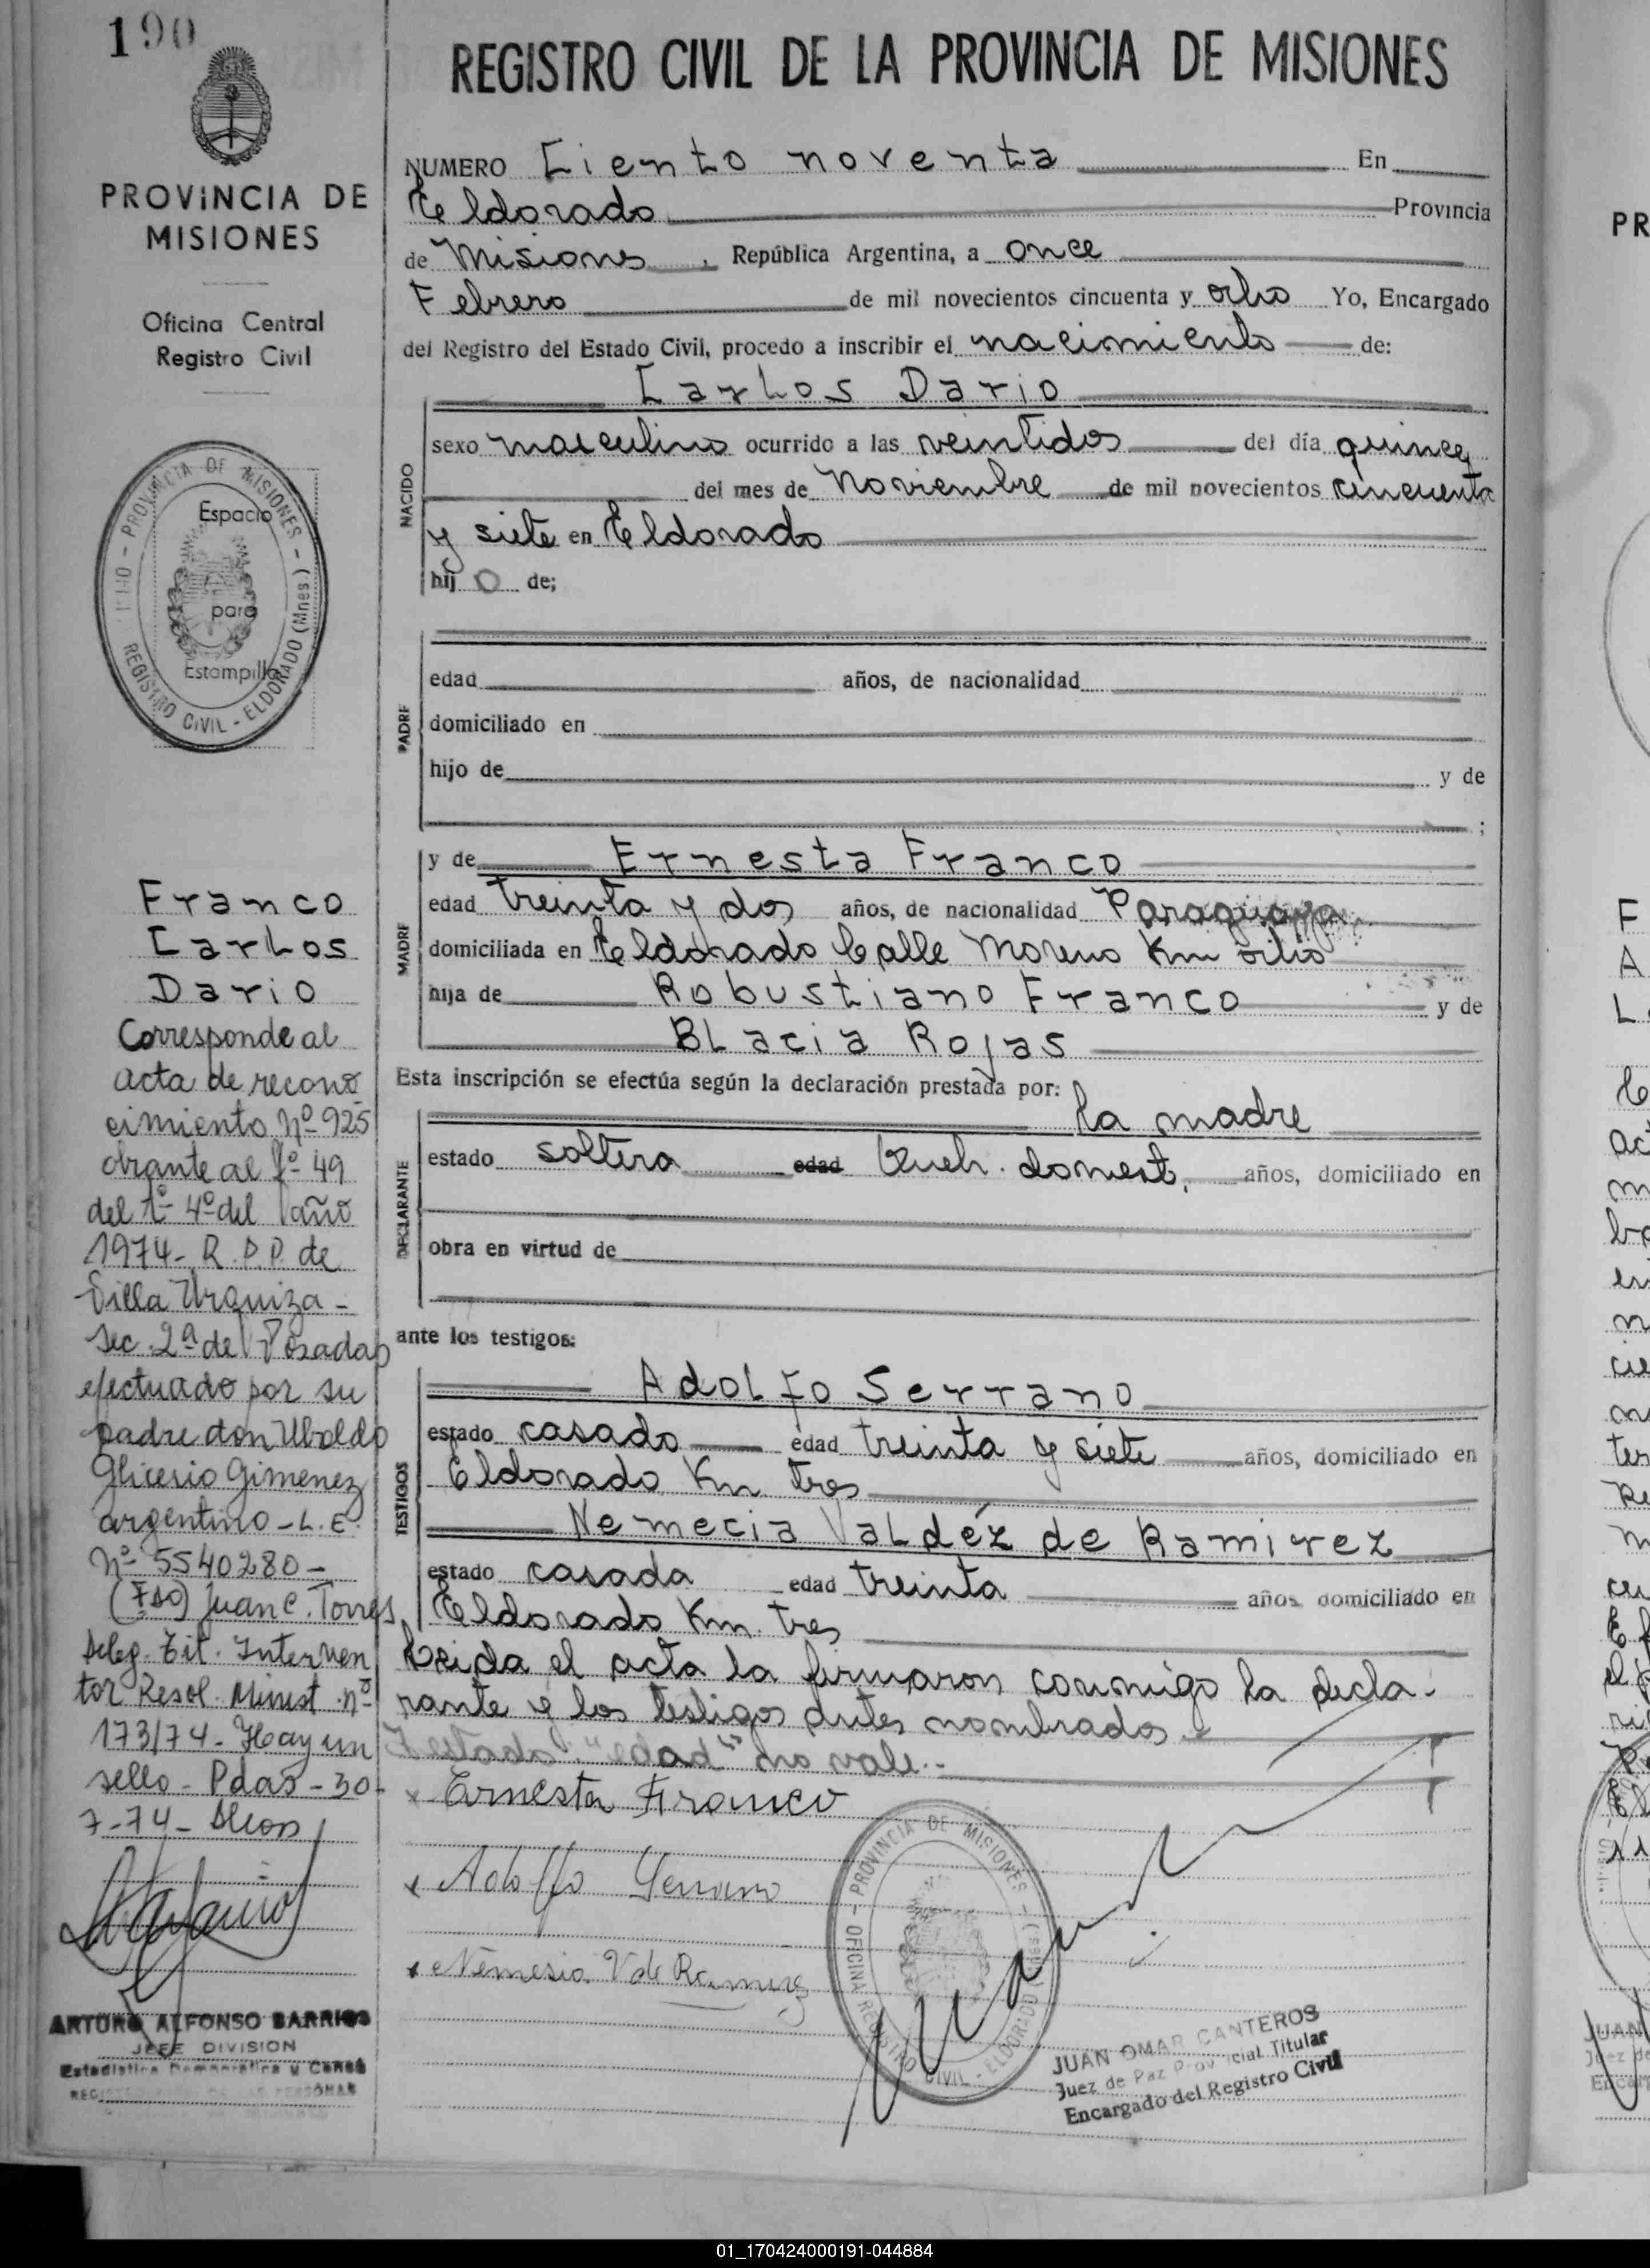 190
PROVINCIA DE
MISIONES
Oficina Central
Registro Civil
PROVINCIA DE MISIONES
Espacio
para
Estampilla
REGISTRO CIVIL - ELDORADO (Mnes.)
Franco
Carlos
Dario
Corresponde al
acta de recono
cimiento Nº 925
obrante al fº 49
del tº 4º del año
1974 - R.P.P. de
Villa Urquiza -
Sec. 2ª de Posadas
efectuado por su
padre don Ubaldo
Glicerio Gimenez
argentino - L.E.
Nº 5540280 -
(FDO) Juan C. Torres
Deleg. Tit. Interven
tor Resol. Minist. nº
173/74 - Hay un
sello - Pdas - 30-
7-74 -
ARTURO ALFONSO BARRIOS
JEFE DIVISION
REGISTRO CIVIL DE LA PROVINCIA DE MISIONES
NUMERO Ciento noventa En
Eldorado Provincia
de Misiones, República Argentina, a once
Febrero de mil novecientos cincuenta y ocho Yo, Encargado
del Registro del Estado Civil, procedo a inscribir el nacimiento de:
Carlos Dario
NACIDO
sexo masculino ocurrido a las veintidos del día quince
del mes de Noviembre de mil novecientos cincuenta
y siete en Eldorado
hijo de;
PADRE
edad años, de nacionalidad
domiciliado en
hijo de y de
;
MADRE
y de Ernesta Franco
edad treinta y dos años, de nacionalidad Paraguaya
domiciliada en Eldorado Calle Moreno Km ocho
hija de Robustiano Franco y de
Blacia Rojas
Esta inscripción se efectúa según la declaración prestada por:
la madre
DECLARANTE
estado soltera edad Queh. domest, años, domiciliado en
obra en virtud de
ante los testigos:
TESTIGOS
Adolfo Serrano
estado casado edad treinta y siete años, domiciliado en
Eldorado Km tres
Nemecia Valdéz de Ramirez
estado casada edad treinta años domiciliado en
Eldorado Km. tres
Leida el acta la firmaron conmigo la decla-
rante y los testigos antes nombrados.
Testado: "edad" no vale.-
x Ernesta Franco
x Adolfo Serrano
x Nemesia V de Ramirez
PROVINCIA DE MISIONES
OFICINA REGISTRO CIVIL - ELDORADO
JUAN OMAR CANTEROS
Juez de Paz Provincial Titular
Encargado del Registro Civil
01_170424000191-044884